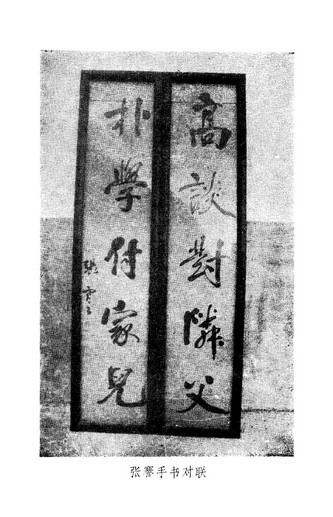 高談對隣父
朴學付家兒
张謇手书对联